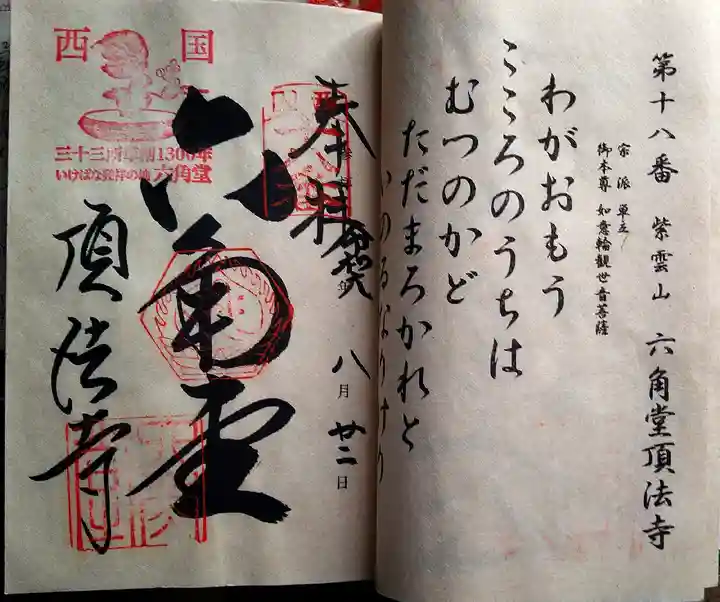 第十八番 紫雲山 六角堂頂法寺
宗派 単立
御本尊 如意輪観世音菩薩
わがおもう
こころのうちは
むつのかど
ただまろかれと
いのるなりけり
奉拝
八月廿二日
六角堂
頂法寺
西国
三十三所草創1300年
いけばな発祥の地 六角堂